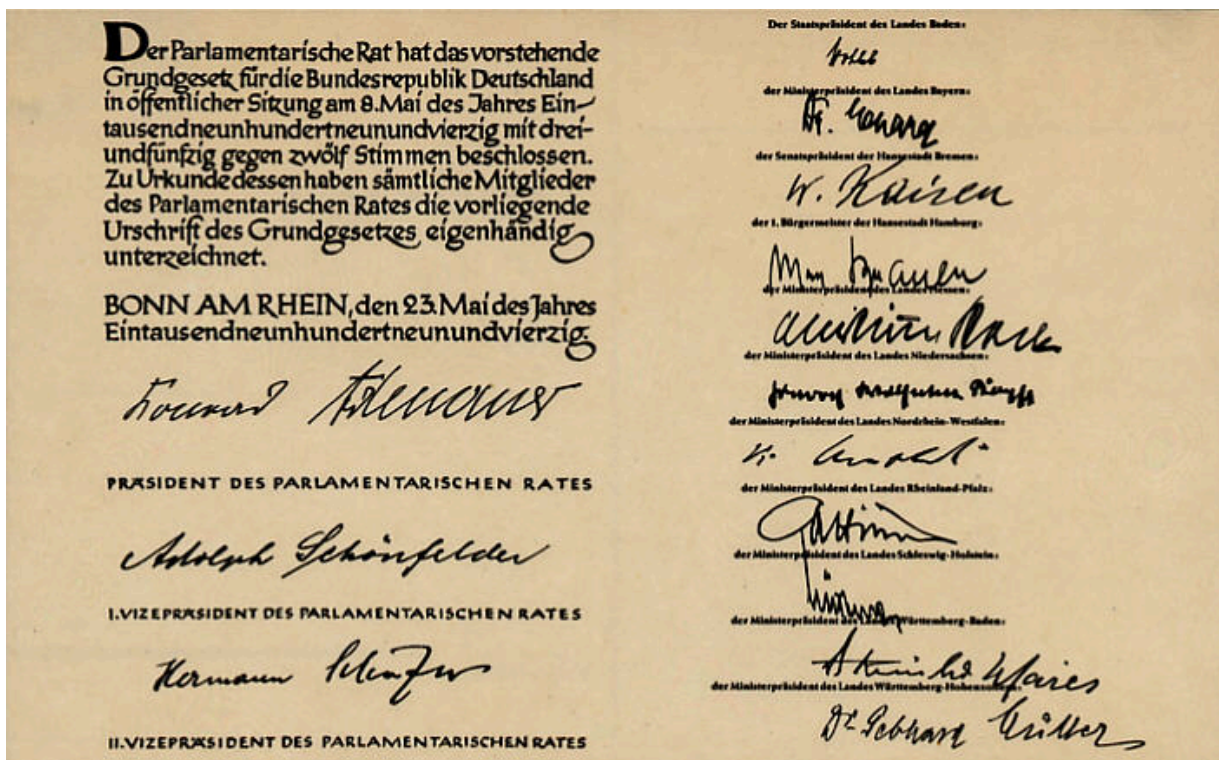 Der Parlamentarische Rat hat das vorstehende
Grundgesetz für die Bundesrepublik Deutschland
in öffentlicher Sitzung am 8. Mai des Jahres Ein-
tausendneunhundertneunundvierzig mit drei-
undfünfzig gegen zwölf Stimmen beschlossen.
Zu Urkunde dessen haben sämtliche Mitglieder
des Parlamentarischen Rates die vorliegende
Urschrift des Grundgesetzes eigenhändig
unterzeichnet.
BONN AM RHEIN, den 23. Mai des Jahres
Eintausendneunhundertneunundvierzig:
Konrad Adenauer
PRÄSIDENT DES PARLAMENTARISCHEN RATES
Adolph Schönfelder
I. VIZEPRÄSIDENT DES PARLAMENTARISCHEN RATES
Hermann Schäfer
II. VIZEPRÄSIDENT DES PARLAMENTARISCHEN RATES
Der Staatspräsident des Landes Baden:
der Ministerpräsident des Landes Bayern:
Dr.
der Senatspräsident der Hansestadt Bremen:
W. Kaisen
der 1. Bürgermeister der Hansestadt Hamburg:
Max Brauer
der Ministerpräsident des Landes Hessen:
der Ministerpräsident des Landes Niedersachsen:
der Ministerpräsident des Landes Nordrhein-Westfalen:
der Ministerpräsident des Landes Rheinland-Pfalz:
der Ministerpräsident des Landes Schleswig-Holstein:
der Ministerpräsident des Landes Württemberg-Baden:
der Ministerpräsident des Landes Württemberg-Hohenzollern:
Dr. Gebhard Müller